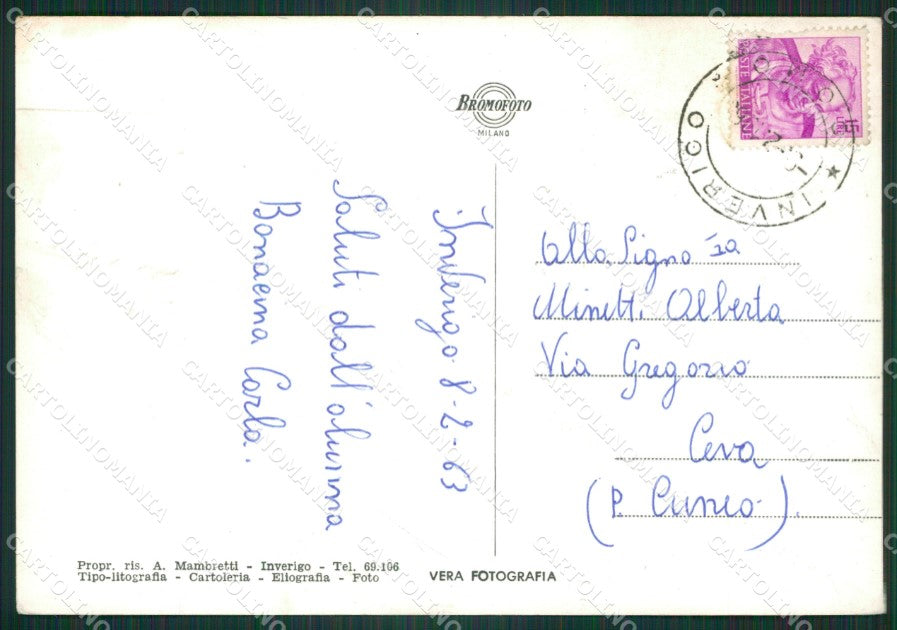 BROMOFOTO
MILANO
POSTE ITALIANE
LIRE 15
INVERIGO
Inverigo 8-2-63
Saluti dall'alunna
Bonacina Carla.
Alla Signora
Minetti Alberta
Via Gregorio
Ceva
(P. Cuneo).
Propr. ris. A. Mambretti - Inverigo - Tel. 69.106
Tipo-litografia - Cartoleria - Eliografia - Foto
VERA FOTOGRAFIA
CARTOLINOMANIA